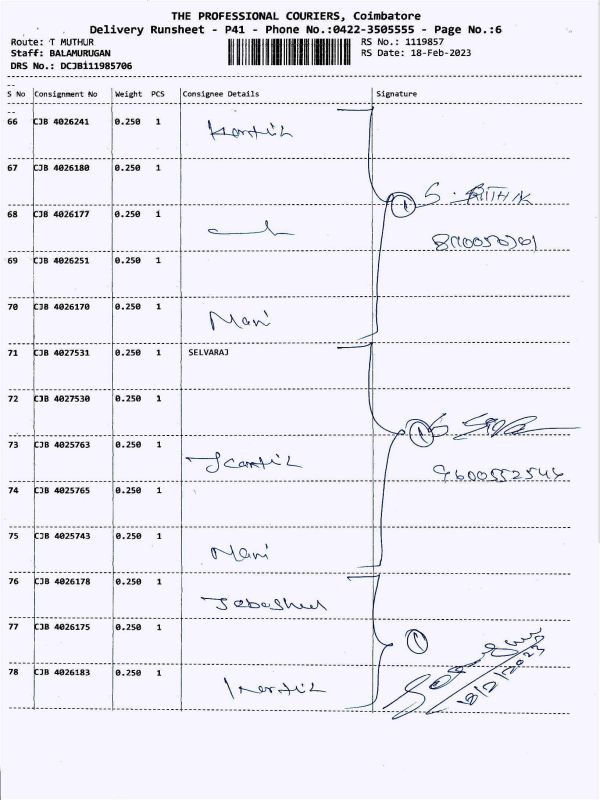 THE PROFESSIONAL COURIERS, Coimbatore
Delivery Runsheet - P41 - Phone No.:0422-3505555 - Page No.:6
Route: T MUTHUR RS No.: 1119857
Staff: BALAMURUGAN RS Date: 18-Feb-2023
DRS No.: DCJBi11985706
S No Consignment No Weight PCS Consignee Details Signature
66 CJB 4026241 0.250 1 Karthik
67 CJB 4026180 0.250 1
S. RITHIK
68 CJB 4026177 0.250 1
69 CJB 4026251 0.250 1
70 CJB 4026170 0.250 1 Mani
71 CJB 4027531 0.250 1 SELVARAJ
72 CJB 4027530 0.250 1
73 CJB 4025763 0.250 1
9600552544
74 CJB 4025765 0.250 1
75 CJB 4025743 0.250 1 Mani
76 CJB 4026178 0.250 1
77 CJB 4026175 0.250 1
78 CJB 4026183 0.250 1 Karthik
18/2/2023